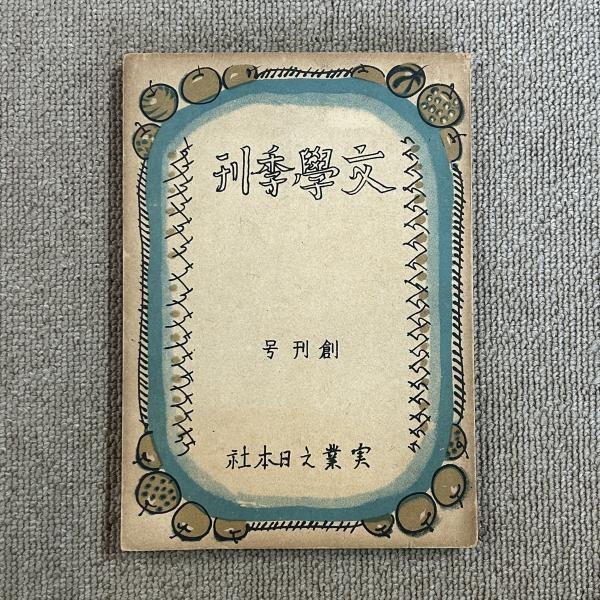 文學季刊
創刊号
実業之日本社